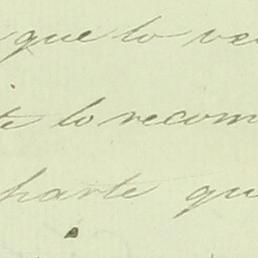 que lo ve
te lo recom
harte qu